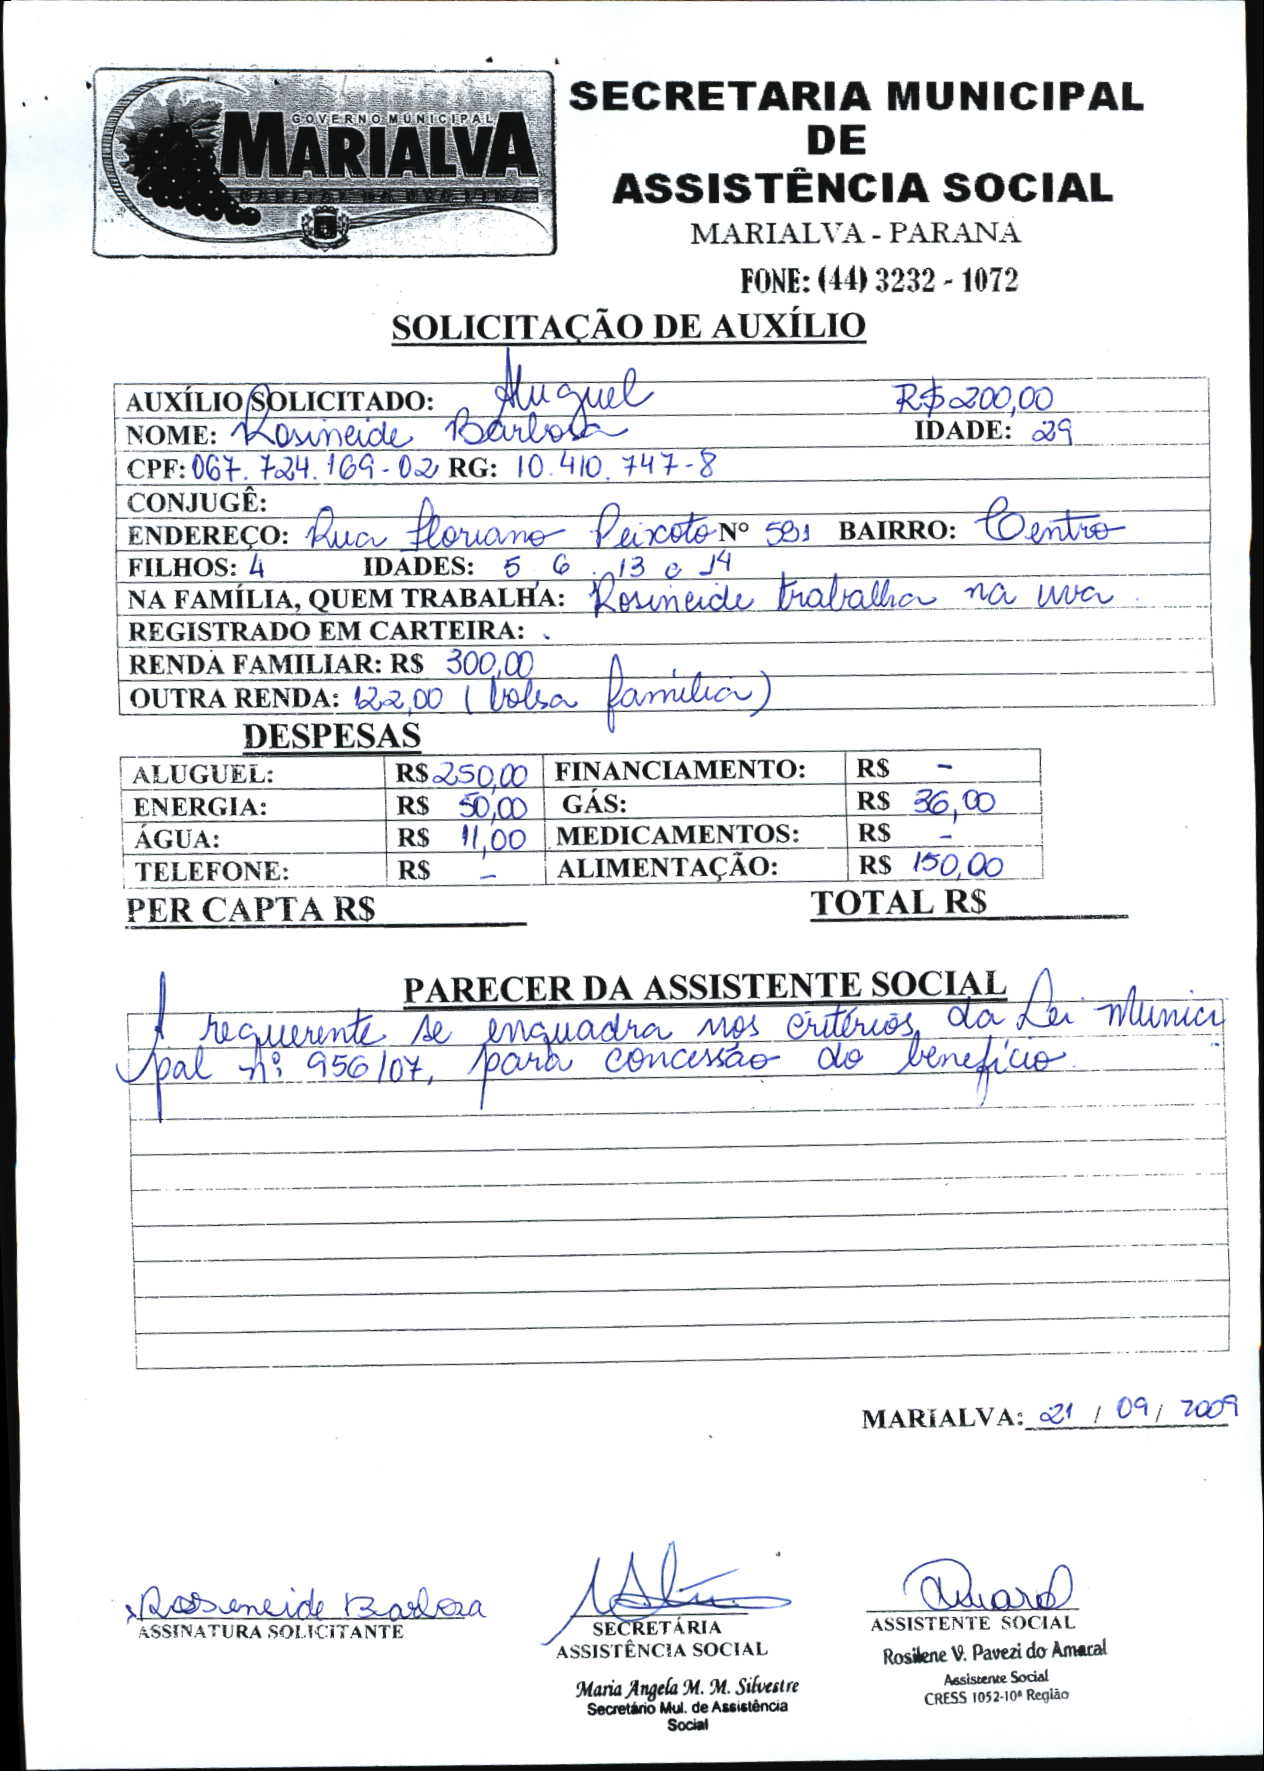 GOVERNO MUNICIPAL
MARIALVA
SECRETARIA MUNICIPAL
DE
ASSISTÊNCIA SOCIAL
MARIALVA - PARANA
FONE: (44) 3232 - 1072
SOLICITAÇÃO DE AUXÍLIO
AUXÍLIO SOLICITADO: Aluguel R$ 200,00
NOME: Rosineide Barbosa IDADE: 29
CPF: 067.724.169-02 RG: 10.410.747-8
CONJUGÊ:
ENDEREÇO: Rua Floriano Peixoto Nº 591 BAIRRO: Centro
FILHOS: 4 IDADES: 5 6, 13 e 14
NA FAMÍLIA, QUEM TRABALHA: Rosineide trabalha na uva.
REGISTRADO EM CARTEIRA:
RENDA FAMILIAR: R$ 300,00
OUTRA RENDA: 122,00 (bolsa família)
DESPESAS
ALUGUEL: R$ 250,00 FINANCIAMENTO: R$ -
ENERGIA: R$ 50,00 GÁS: R$ 36,00
ÁGUA: R$ 11,00 MEDICAMENTOS: R$ -
TELEFONE: R$ - ALIMENTAÇÃO: R$ 150,00
PER CAPTA R$ TOTAL R$
PARECER DA ASSISTENTE SOCIAL
A requerente se enquadra nos critérios da Lei Munici
pal nº 956/07, para concessão do benefício.
MARIALVA: 21 / 09 / 2009
Roseneide Barbosa
ASSINATURA SOLICITANTE
SECRETÁRIA
ASSISTÊNCIA SOCIAL
Maria Angela M. M. Silvestre
Secretário Mul. de Assistência
Social
Amaral
ASSISTENTE SOCIAL
Rosilene V. Pavezi do Amaral
Assistente Social
CRESS 1052-10ª Região